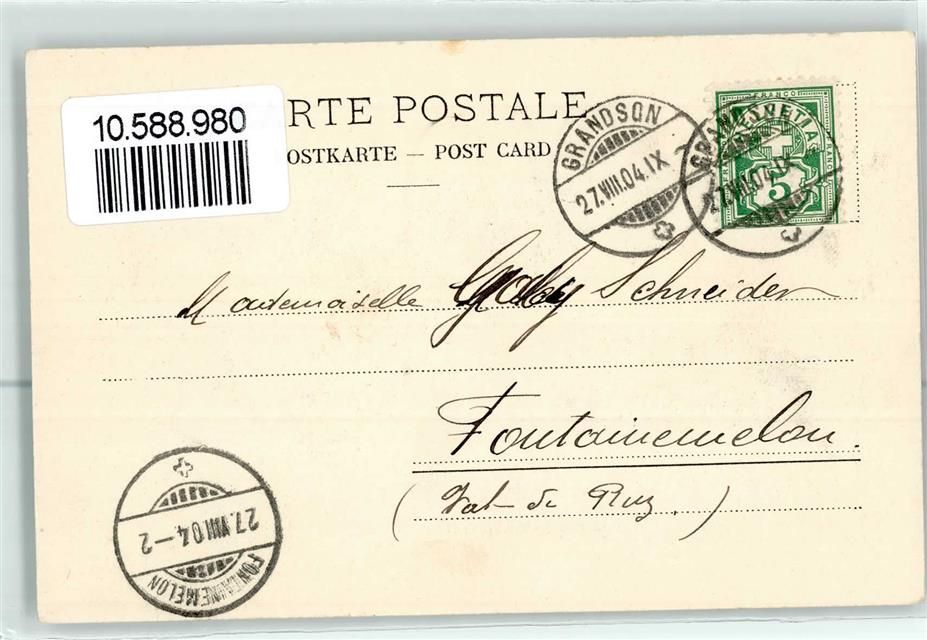 10.588.980
RTE POSTALE
OSTKARTE — POST CARD
GRANDSON
27.VIII.04.IX
FRANCO
HELVETIA
5
GRANDSON
27.VIII.04.IX
Mademoiselle Schneider
Fontainemelon.
(Val-de Ruz.)
27.VIII 04-2
FONTAINEMELON